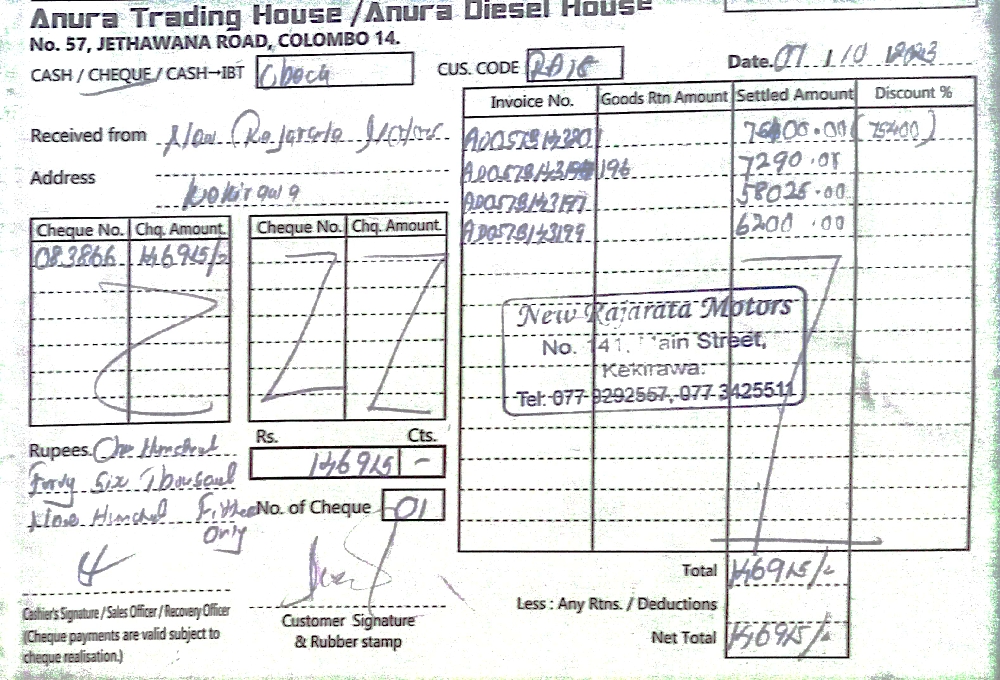 Anura Trading House / Anura Diesel House
No. 57, JETHAWANA ROAD, COLOMBO 14.
CASH / CHEQUE / CASH→IBT Check
CUS. CODE
Date. 07 / 10 / 2023
Received from New Rajarata Motors
Address Kekirawa
Cheque No. Chq. Amount
083866 146915/=
Cheque No. Chq. Amount
Invoice No. Goods Rtn Amount Settled Amount Discount %
75400.00 (75400)
7290.00
AD057B143197 58025.00
AD057B143199 6200.00
New Rajarata Motors
No. 141, Main Street,
Kekirawa.
Tel: 077-9292557, 077-3425511
Rupees. One Hundred
Forty Six Thousand
Nine Hundred Fifteen
Only
Rs. Cts.
146915 -
No. of Cheque 01
Total 146915/=
Less : Any Rtns. / Deductions
Net Total 146915/=
Cashier's Signature / Sales Officer / Recovery Officer
(Cheque payments are valid subject to
cheque realisation.)
Customer Signature
& Rubber stamp